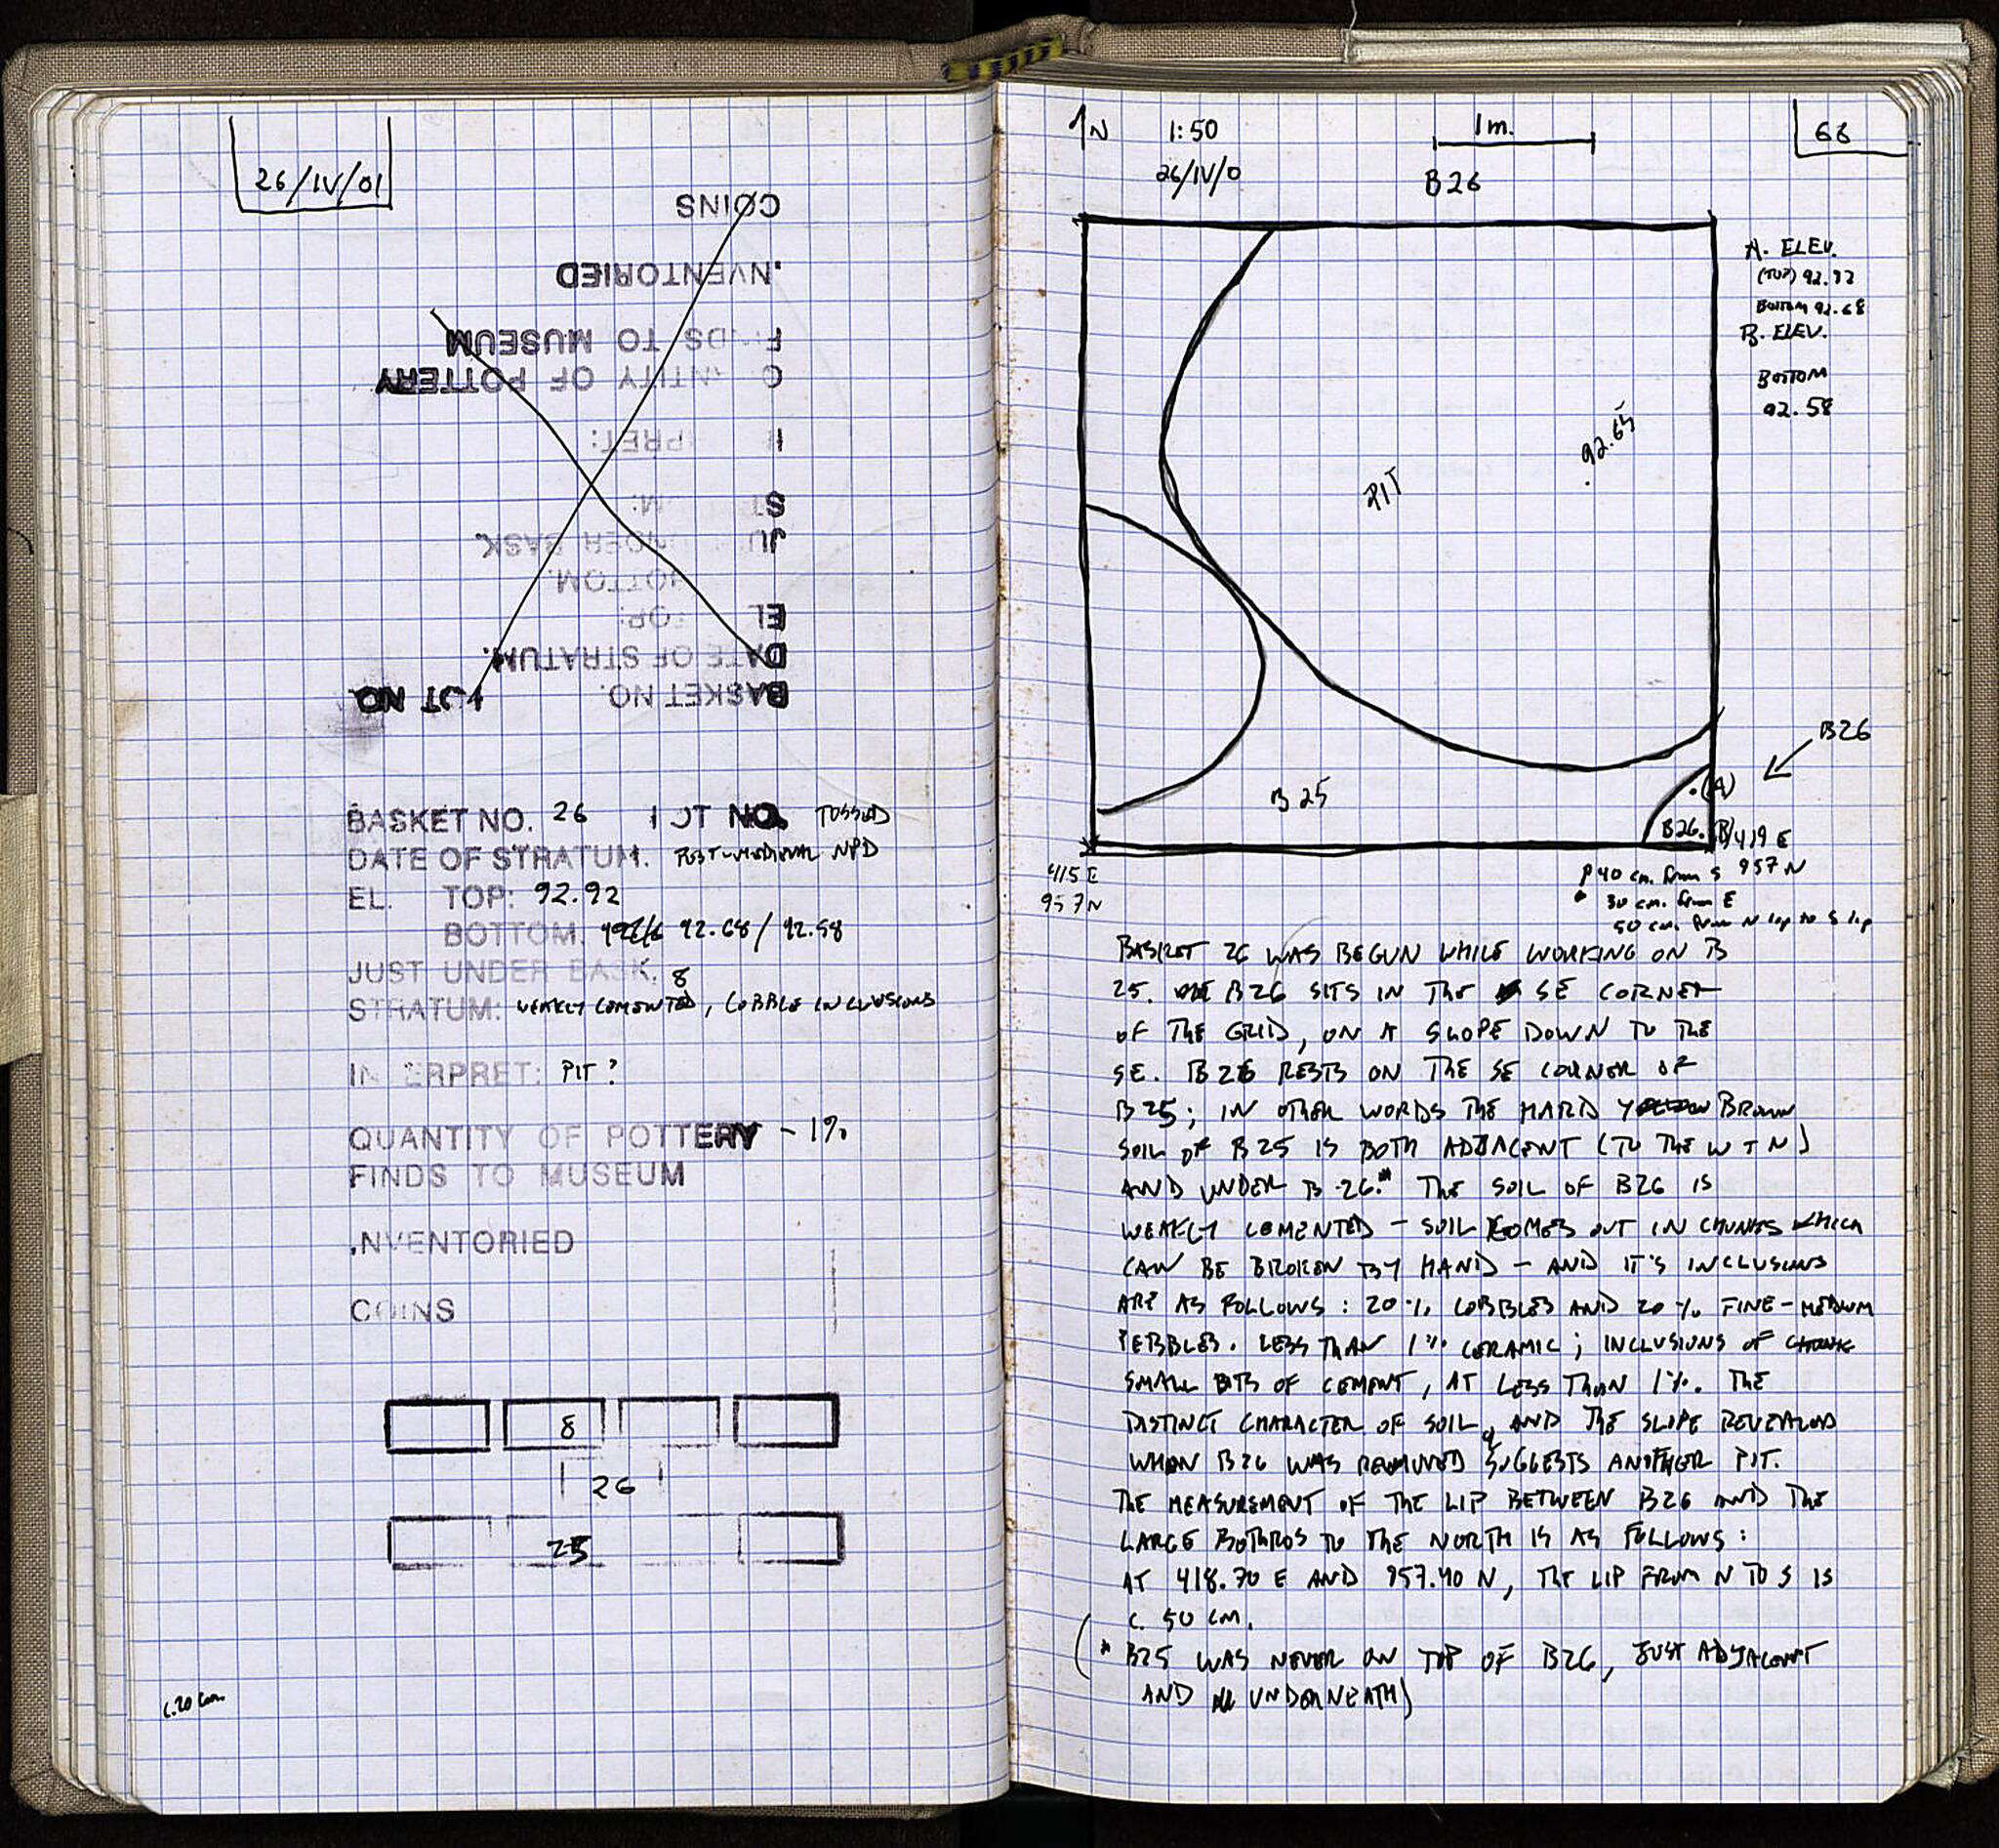 26/IV/01
COINS
.NVENTORIED
F DS TO MUSEUM
Q NTITY OF POTTERY
I PRET:
ST M:
JU NDER BASK.
BOTTOM.
EL OP:
DATE OF STRATUM.
BASKET NO. LOT NO
BASKET NO. 26 LOT NO. TOSSED
DATE OF STRATUM. POST-MEDIEVAL NPD
EL. TOP: 92.92
BOTTOM. 92.68/92.58
JUST UNDER BASK. 8
STRATUM: WEAKLY CEMENTED, COBBLE INCLUSIONS
IN ERPRET: PIT?
QUANTITY OF POTTERY - 1%
FINDS TO MUSEUM
.NVENTORIED
COINS
8
26
25
c. 20 cm.
N 1:50 1m. 68
26/IV/0 B26
A. ELEV.
(TOP) 92.92
BOTTOM 92.68
B. ELEV.
BOTTOM
92.58
92.65
PIT
B26
(A)
B 25
B26. (B) 419 E
957 N
415 E
957 N
40 cm. from S
30 cm. from E
50 cm. from N lip to S lip
BASKET 26 WAS BEGUN WHILE WORKING ON B
25. B26 SITS IN THE SE CORNER
OF THE GRID, ON A SLOPE DOWN TO THE
SE. B26 RESTS ON THE SE CORNER OF
B25; IN OTHER WORDS THE HARD YELLOW BROWN
SOIL OF B25 IS BOTH ADJACENT (TO THE W + N)
AND UNDER B 26.* THE SOIL OF B26 IS
WEAKLY CEMENTED - SOIL COMES OUT IN CHUNKS WHICH
CAN BE BROKEN BY HAND - AND IT'S INCLUSIONS
ARE AS FOLLOWS: 20% COBBLES AND 20% FINE-MEDIUM
PEBBLES. LESS THAN 1% CERAMIC; INCLUSIONS OF CHUNK
SMALL BITS OF CEMENT, AT LESS THAN 1%. THE
DISTINCT CHARACTER OF SOIL, AND THE SLOPE REVEALED
WHEN B26 WAS REMOVED SUGGESTS ANOTHER PIT.
THE MEASUREMENT OF THE LIP BETWEEN B26 AND THE
LARGE BOTHROS TO THE NORTH IS AS FOLLOWS:
AT 418.70 E AND 957.40 N, THE LIP FROM N TO S IS
C. 50 CM.
(* B25 WAS NEVER ON TOP OF B26, JUST ADJACENT
AND UNDERNEATH)